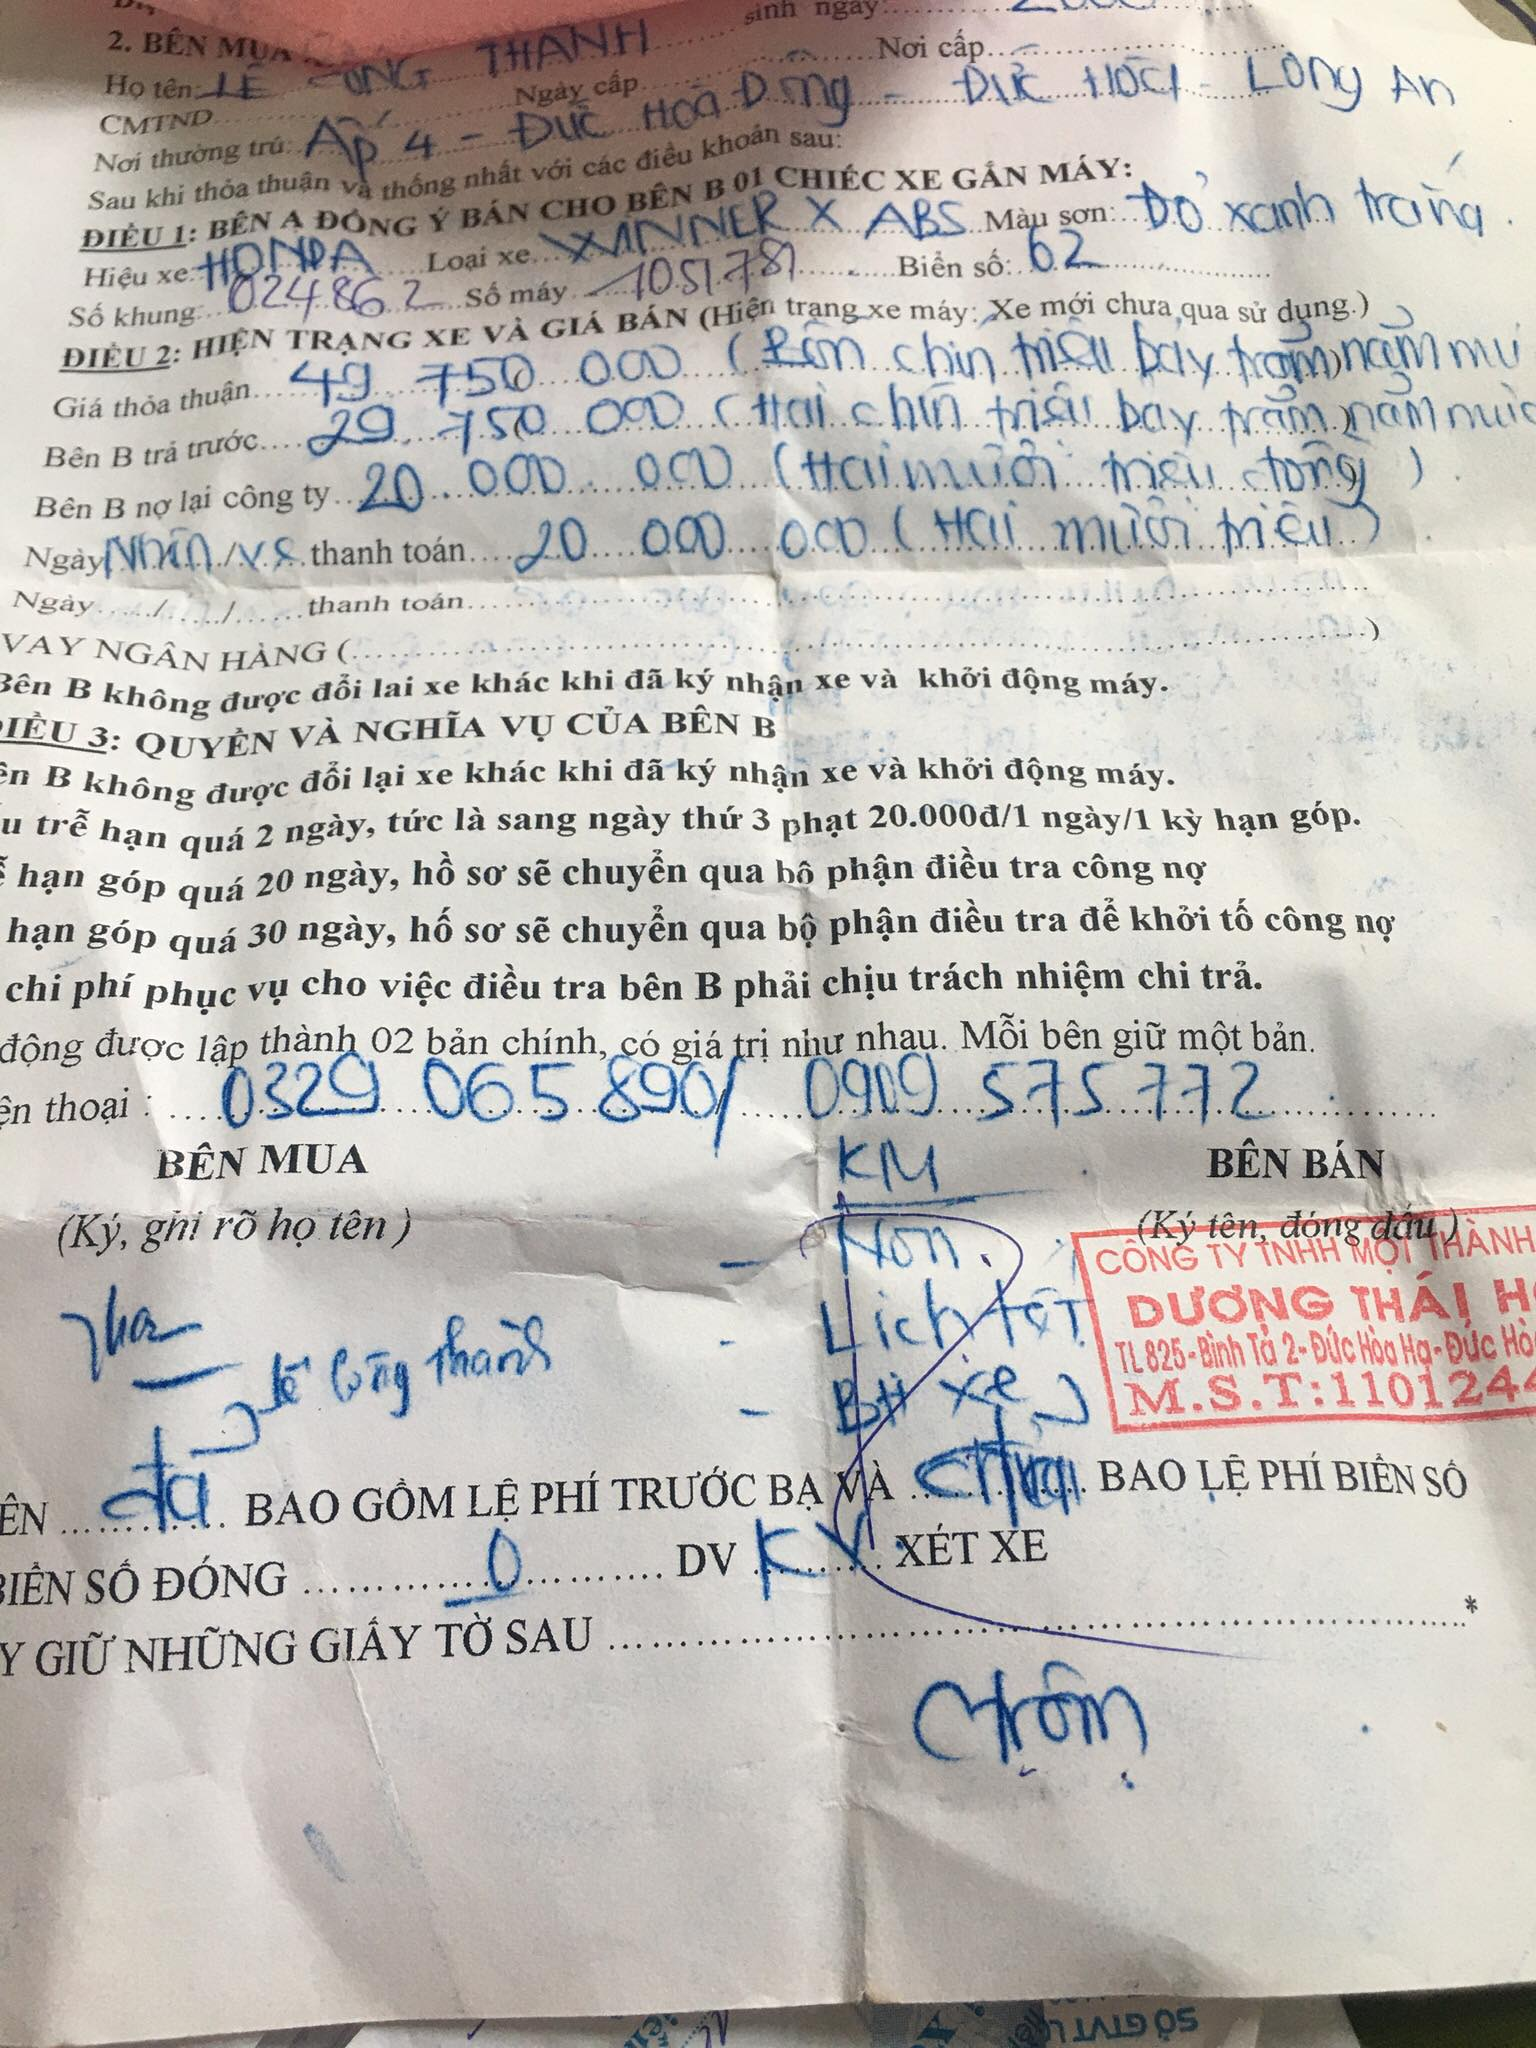 sinh ngày:
2. BÊN MUA
Họ tên: LÊ CÔNG THÀNH
CMTND Ngày cấp Nơi cấp
Nơi thường trú: Ấp 4 - ĐỨC HOÀ Đông - ĐỨC HÒA - LONG AN
Sau khi thỏa thuận và thống nhất với các điều khoản sau:
ĐIỀU 1: BÊN A ĐỒNG Ý BÁN CHO BÊN B 01 CHIẾC XE GẮN MÁY:
Hiệu xe: HONDA Loại xe WINNER X ABS Màu sơn: Đỏ xanh trắng.
Số khung: 024862 Số máy 1051781 Biển số: 62
ĐIỀU 2: HIỆN TRẠNG XE VÀ GIÁ BÁN (Hiện trạng xe máy: Xe mới chưa qua sử dụng.)
Giá thỏa thuận 49 750 000 (Bốn chín triệu bảy trăm) năm mư
Bên B trả trước 29. 750 000 (Hai chín triệu bảy trăm) năm mươi
Bên B nợ lại công ty 20. 000. 000 (Hai mươi triệu đồng)
Ngày Nhận/v.s thanh toán 20 000 000 (Hai mươi triệu)
Ngày....../....../...... thanh toán
VAY NGÂN HÀNG ( )
Bên B không được đổi lai xe khác khi đã ký nhận xe và khởi động máy.
ĐIỀU 3: QUYỀN VÀ NGHĨA VỤ CỦA BÊN B
ên B không được đổi lại xe khác khi đã ký nhận xe và khởi động máy.
u trễ hạn quá 2 ngày, tức là sang ngày thứ 3 phạt 20.000đ/1 ngày/1 kỳ hạn góp.
ễ hạn góp quá 20 ngày, hồ sơ sẽ chuyển qua bộ phận điều tra công nợ
hạn góp quá 30 ngày, hố sơ sẽ chuyển qua bộ phận điều tra để khởi tố công nợ
chi phí phục vụ cho việc điều tra bên B phải chịu trách nhiệm chi trả.
động được lập thành 02 bản chính, có giá trị như nhau. Mỗi bên giữ một bản.
ện thoại : 0329 065 890/ 0909 575 772
BÊN MUA KM BÊN BÁN
(Ký, ghi rõ họ tên ) (Ký tên, đóng dấu )
- Nón.
CÔNG TY TNHH MỘT THÀNH
DƯƠNG THÁI H
- Lịch tết
TL 825-Bình Tả 2-Đức Hòa Hạ-Đức Hò
Lê Công Thành
- BH xe
M.S.T:1101244
ÊN đã BAO GỒM LỆ PHÍ TRƯỚC BẠ VÀ chưa BAO LỆ PHÍ BIỂN SỐ
BIỂN SỐ ĐÓNG 0 DV KV XÉT XE
Y GIỮ NHỮNG GIẤY TỜ SAU *
SỞ GTVT